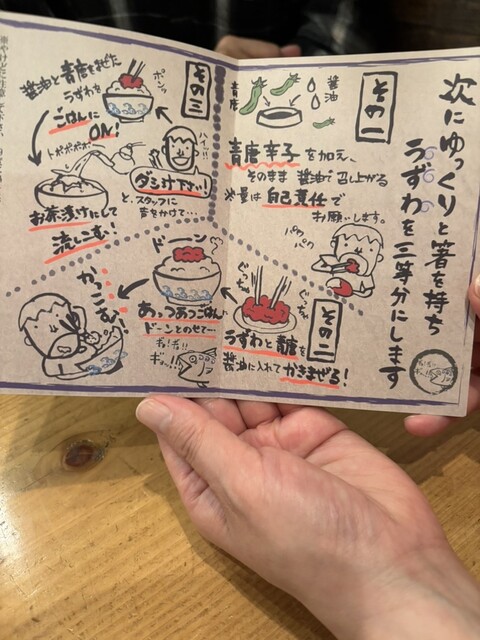 次にゆっくりと箸を持ち
うずわを三等分にします
その一
醤油
青唐
青唐辛子を加え、
そのまま醤油で召し上がる
※量は自己責任で
お願いします。
パク
パク
その二
ぐっちゃ
ぐっちゃ
うずわと青唐を
醤油に入れてかきまぜる!
ドーン
あっつあつごはん
ドーンとのせてー
ギョ!ギョ!!
その三
醤油と青唐をまぜた
うずわを
ポンッ
ごはんに
ON!
ハイッ!!
トポポポポ
ダシ汁下さい!
と、スタッフに
声をかけて…
お茶漬けにして
流しこむ!
かっこむ!!